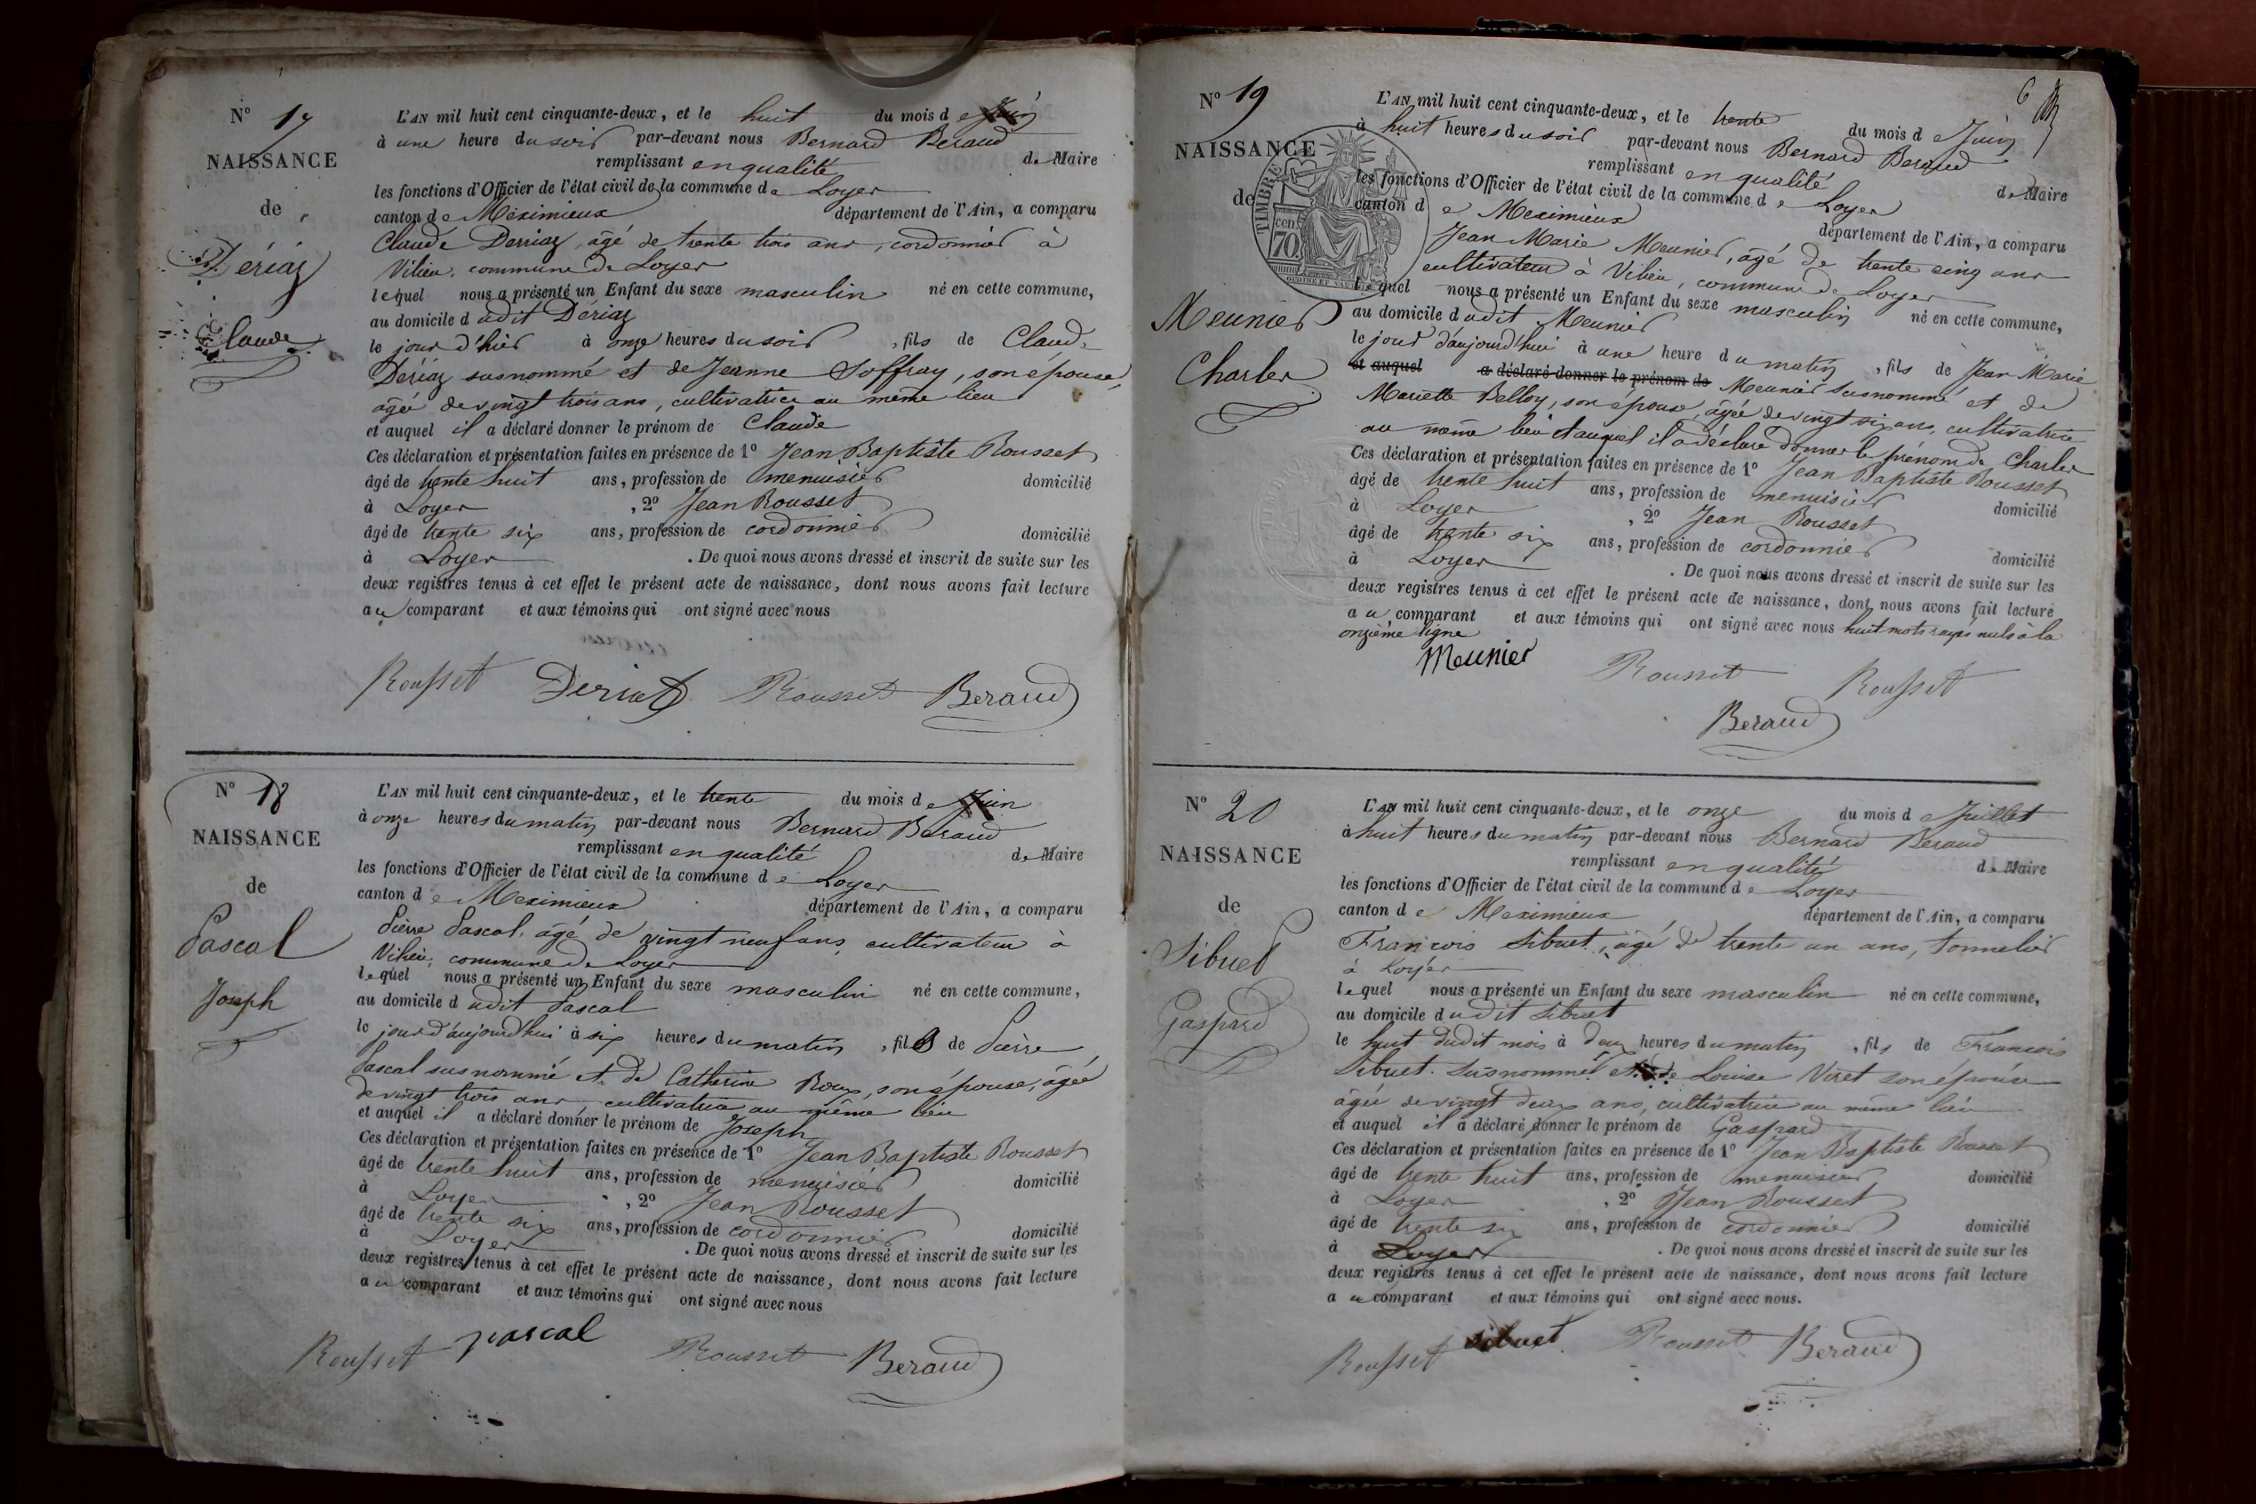 N° 17
NAISSANCE
de
Dériaz
Claude
L'AN mil huit cent cinquante-deux, et le huit du mois de Juin
à une heure du soir par-devant nous Bernard Beraud
remplissant en qualité de Maire
les fonctions d'Officier de l'état civil de la commune de Loyes
canton de Méximieux département de l'Ain, a comparu
Claude Derriaz, âgé de trente trois ans, cordonnier à
Vilieu, commune de Loyes
lequel nous a présenté un Enfant du sexe masculin né en cette commune,
au domicile dudit Dériaz
le jour d'hier à onze heures du soir, fils de Claude
Dériaz susnommé et de Jeanne Soffray, son épouse,
âgée de vingt trois ans, cultivatrice au même lieu
et auquel il a déclaré donner le prénom de Claude
Ces déclaration et présentation faites en présence de 1° Jean Baptiste Rousset
âgé de trente huit ans, profession de menuisier domicilié
à Loyes, 2° Jean Rousset
âgé de trente six ans, profession de cordonnier domicilié
à Loyes. De quoi nous avons dressé et inscrit de suite sur les
deux registres tenus à cet effet le présent acte de naissance, dont nous avons fait lecture
au comparant et aux témoins qui ont signé avec nous
Rousset Deriaz Rousset Beraud
N° 18
NAISSANCE
de
Pascal
Joseph
L'AN mil huit cent cinquante-deux, et le trente du mois de Juin
à onze heures du matin par-devant nous Bernard Beraud
remplissant en qualité de Maire
les fonctions d'Officier de l'état civil de la commune de Loyes
canton de Meximieux département de l'Ain, a comparu
Pierre Pascal, âgé de vingt neuf ans, cultivateur à
Vilieu, commune de Loyes
lequel nous a présenté un Enfant du sexe masculin né en cette commune,
au domicile dudit Pascal
le jour d'aujourd'hui à six heures du matin, fils de Pierre
Pascal susnommé et de Catherine Roux, son épouse, âgée
de vingt trois ans cultivatrice au même lieu
et auquel il a déclaré donner le prénom de Joseph
Ces déclaration et présentation faites en présence de 1° Jean Baptiste Rousset
âgé de trente huit ans, profession de menuisier domicilié
à Loyes, 2° Jean Rousset
âgé de trente six ans, profession de cordonnier domicilié
à Loyes. De quoi nous avons dressé et inscrit de suite sur les
deux registres tenus à cet effet le présent acte de naissance, dont nous avons fait lecture
au comparant et aux témoins qui ont signé avec nous
Rousset pascal Rousset Beraud
6
N° 19
NAISSANCE
de
Meunier
Charles
TIMBRE
70 cen.
L'AN mil huit cent cinquante-deux, et le trente du mois de Juin
à huit heures du soir par-devant nous Bernard Beraud
remplissant en qualité de Maire
les fonctions d'Officier de l'état civil de la commune de Loyes
canton de Meximieux département de l'Ain, a comparu
Jean Marie Meunier, âgé de trente cinq ans
cultivateur à Vilieu, commune de Loyes
lequel nous a présenté un Enfant du sexe masculin né en cette commune,
au domicile dudit Meunier
le jour d'aujourd'hui à une heure du matin, fils de Jean Marie
et auquel a déclaré donner le prénom de Meunier susnommé et de
Mariette Belloy, son épouse, âgée de vingt six ans, cultivatrice
au même lieu et auquel il a déclaré donner le prénom de Charles
Ces déclaration et présentation faites en présence de 1° Jean Baptiste Rousset
âgé de trente huit ans, profession de menuisier domicilié
à Loyes, 2° Jean Rousset
âgé de trente six ans, profession de cordonnier domicilié
à Loyes. De quoi nous avons dressé et inscrit de suite sur les
deux registres tenus à cet effet le présent acte de naissance, dont nous avons fait lecture
au comparant et aux témoins qui ont signé avec nous huit mots rayés nuls à la
onzième ligne
Meunier Rousset Rousset
Beraud
N° 20
NAISSANCE
de
Sibuet
Gaspard
L'AN mil huit cent cinquante-deux, et le onze du mois de Juillet
à huit heures du matin par-devant nous Bernard Beraud
remplissant en qualité de Maire
les fonctions d'Officier de l'état civil de la commune de Loyes
canton de Meximieux département de l'Ain, a comparu
François Sibuet, âgé de trente un ans, tonnelier
à Loyes
lequel nous a présenté un Enfant du sexe masculin né en cette commune,
au domicile dudit Sibuet
le huit dudit mois à deux heures du matin, fils de François
Sibuet susnommé et de Louise Viret son épouse
âgée de vingt deux ans, cultivatrice au même lieu
et auquel il a déclaré donner le prénom de Gaspard
Ces déclaration et présentation faites en présence de 1° Jean Baptiste Rousset
âgé de trente huit ans, profession de menuisier domicilié
à Loyes, 2° Jean Rousset
âgé de trente six ans, profession de cordonnier domicilié
à Loyes. De quoi nous avons dressé et inscrit de suite sur les
deux registres tenus à cet effet le présent acte de naissance, dont nous avons fait lecture
au comparant et aux témoins qui ont signé avec nous.
Rousset sibuet Rousset Beraud